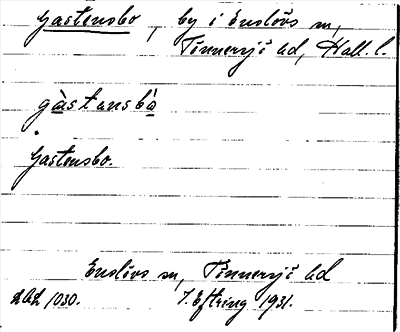 Gastensbo, by i Enslövs sn,
Tönnersjö hd, Hall. l.
gàstansbò
Gastensbo.
Enslövs sn, Tönnersjö hd
DAL 1030. I. Eftring 1931.